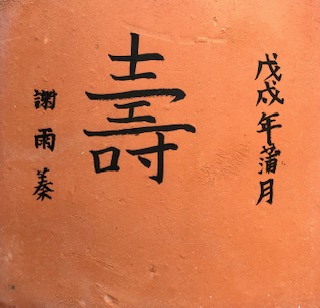 戊戌年蒲月
壽
謝雨蓁